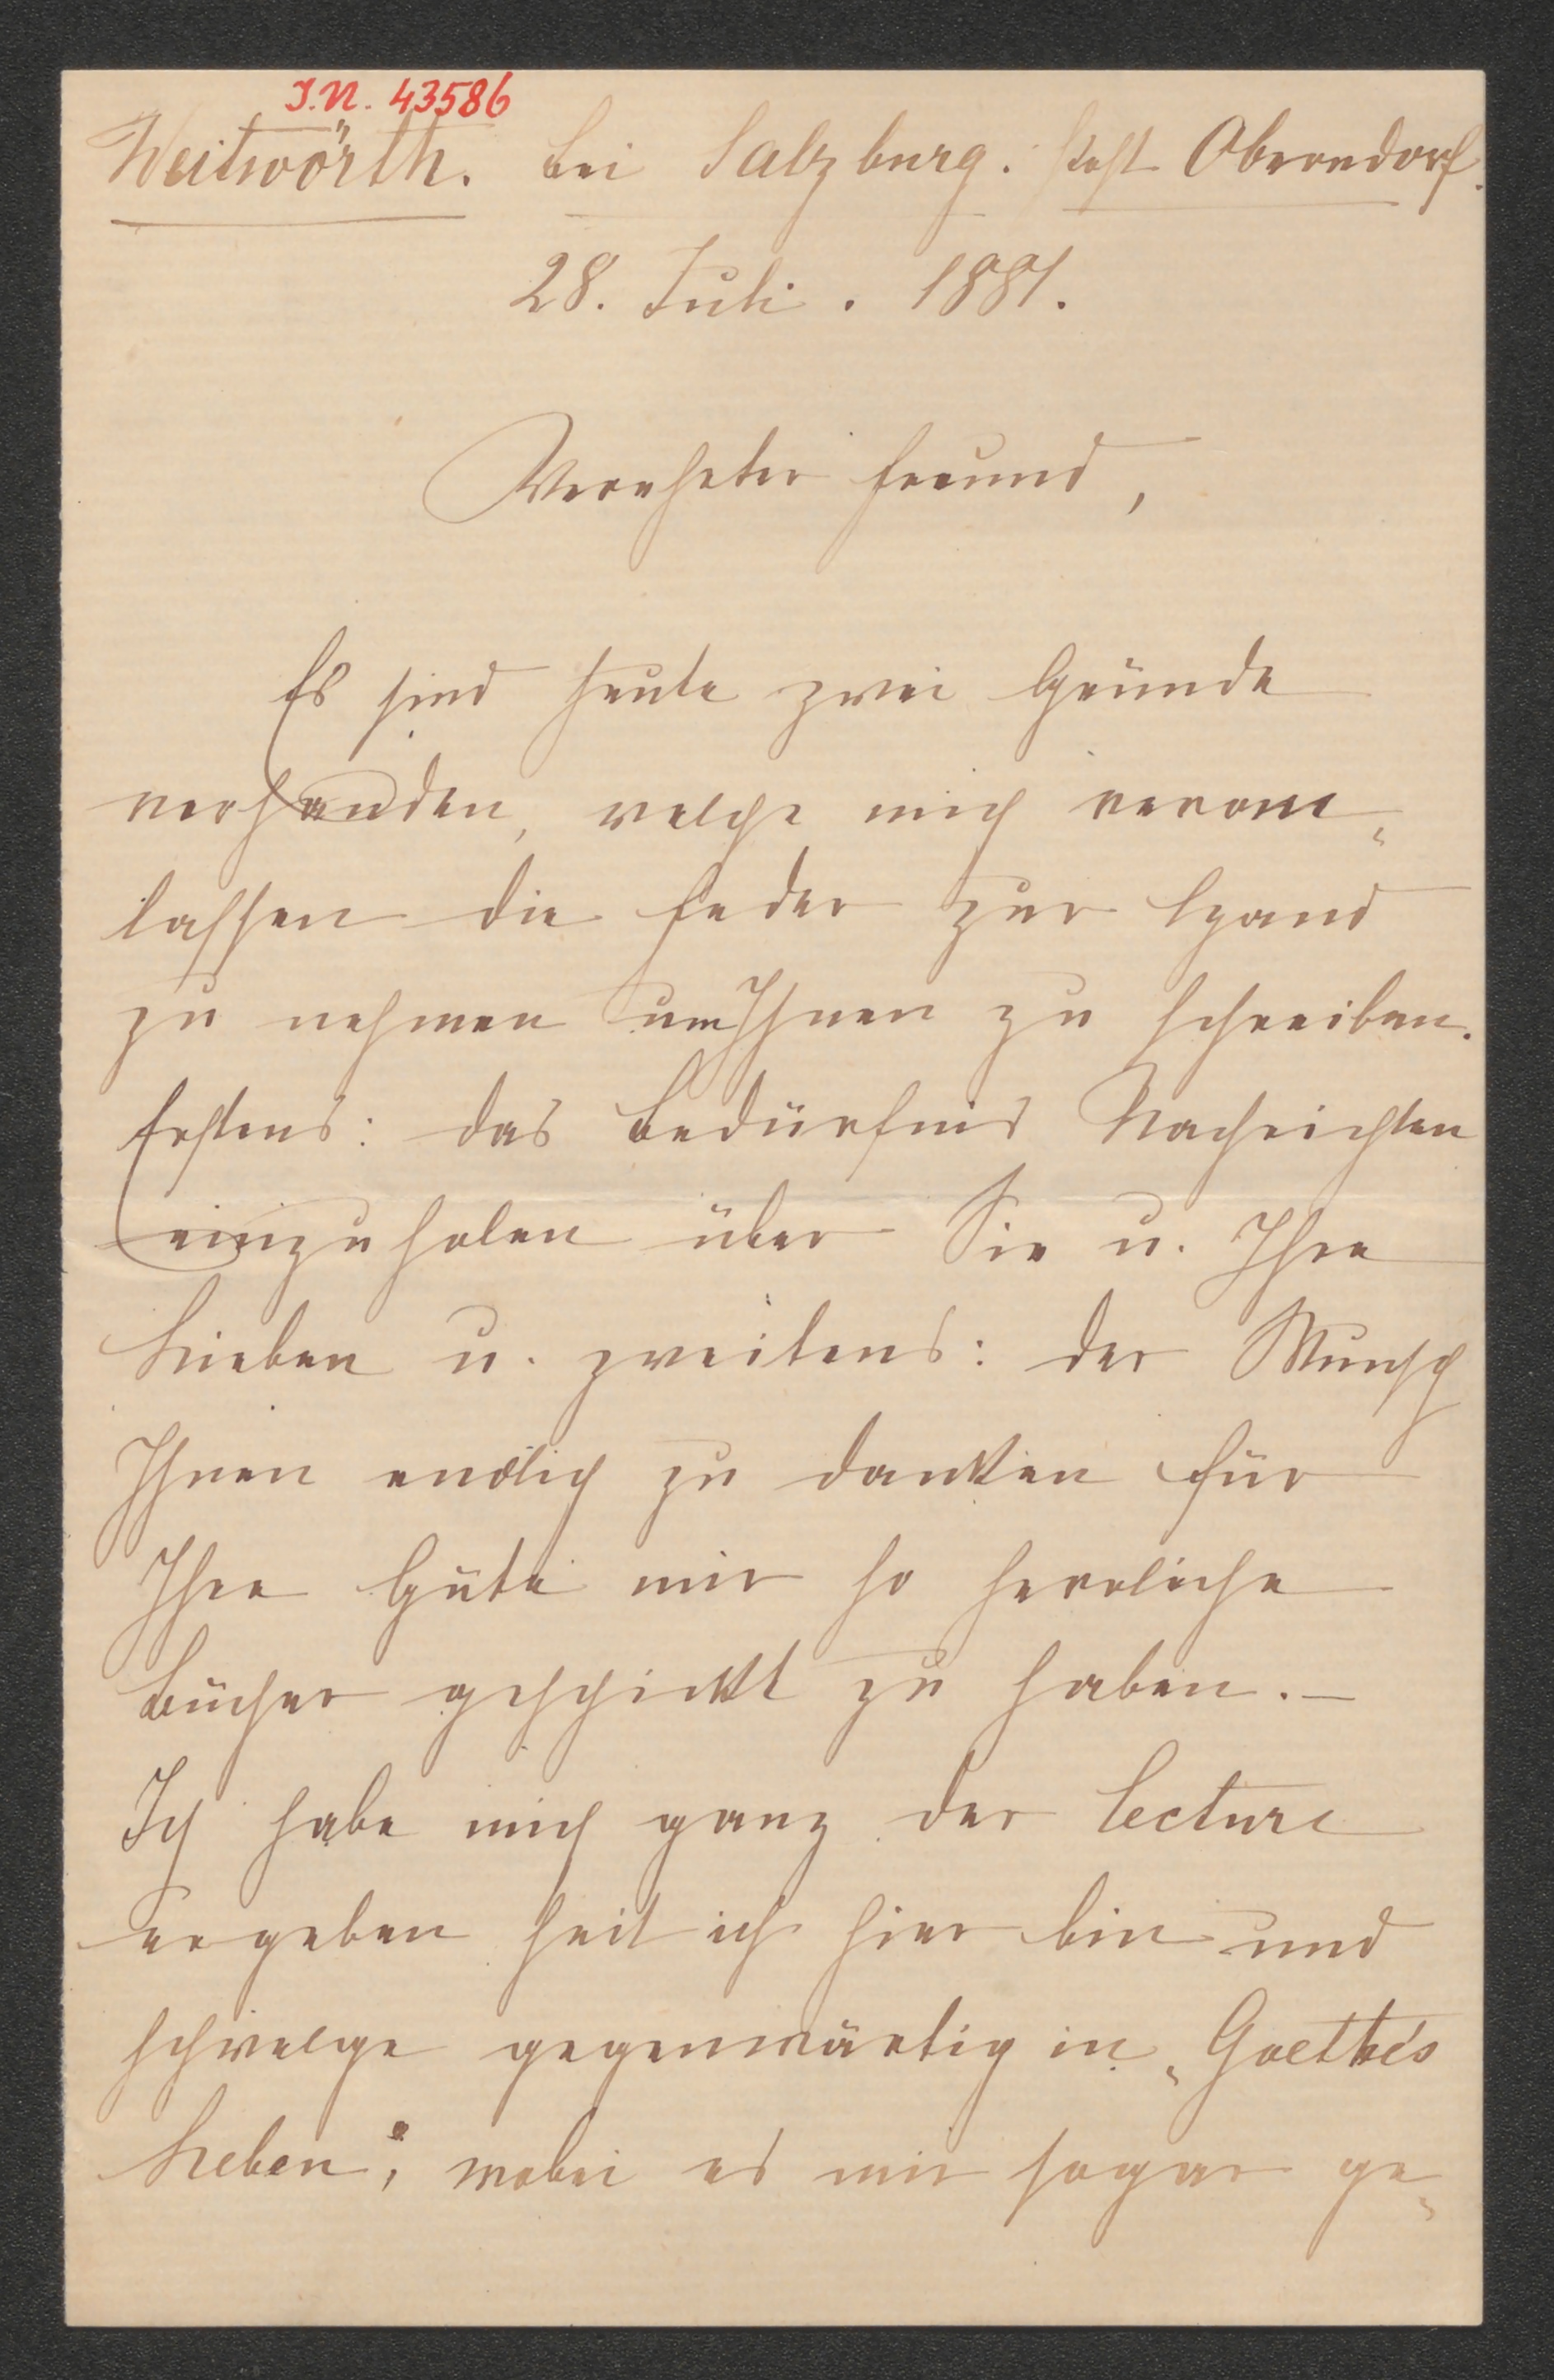 J.N. 43586
Weitwörth. bei Salzburg. Post Oberndorf.
28. Juli. 1881.
Verehrter Freund,
Es sind heute zwei Gründe
vorhanden, welche mich veran-
lassen die Feder zur Hand
zu nehmen um Ihnen zu schreiben.
Erstens: das Bedürfnis Nachrichten
einzuholen über Sie u. Ihre
Lieben u. zweitens: der Wunsch
Ihnen endlich zu danken für
Ihre Güte mir so herrliche
Bücher geschickt zu haben. —
Ich habe mich ganz der Lecture
ergeben seit ich hier bin und
schwelge gegenwärtig in „Goethe's
Leben", wobei es mir sogar ge-